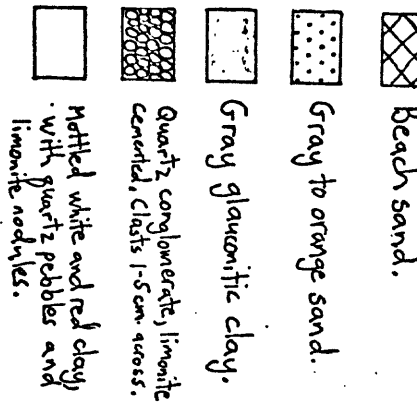 Beach sand.
Gray to orange sand.
Gray glauconitic clay.
Quartz conglomerate, limonite
cemented, Clasts 1-5cm. across.
Mottled white and red clay,
with quartz pebbles and
limonite nodules.